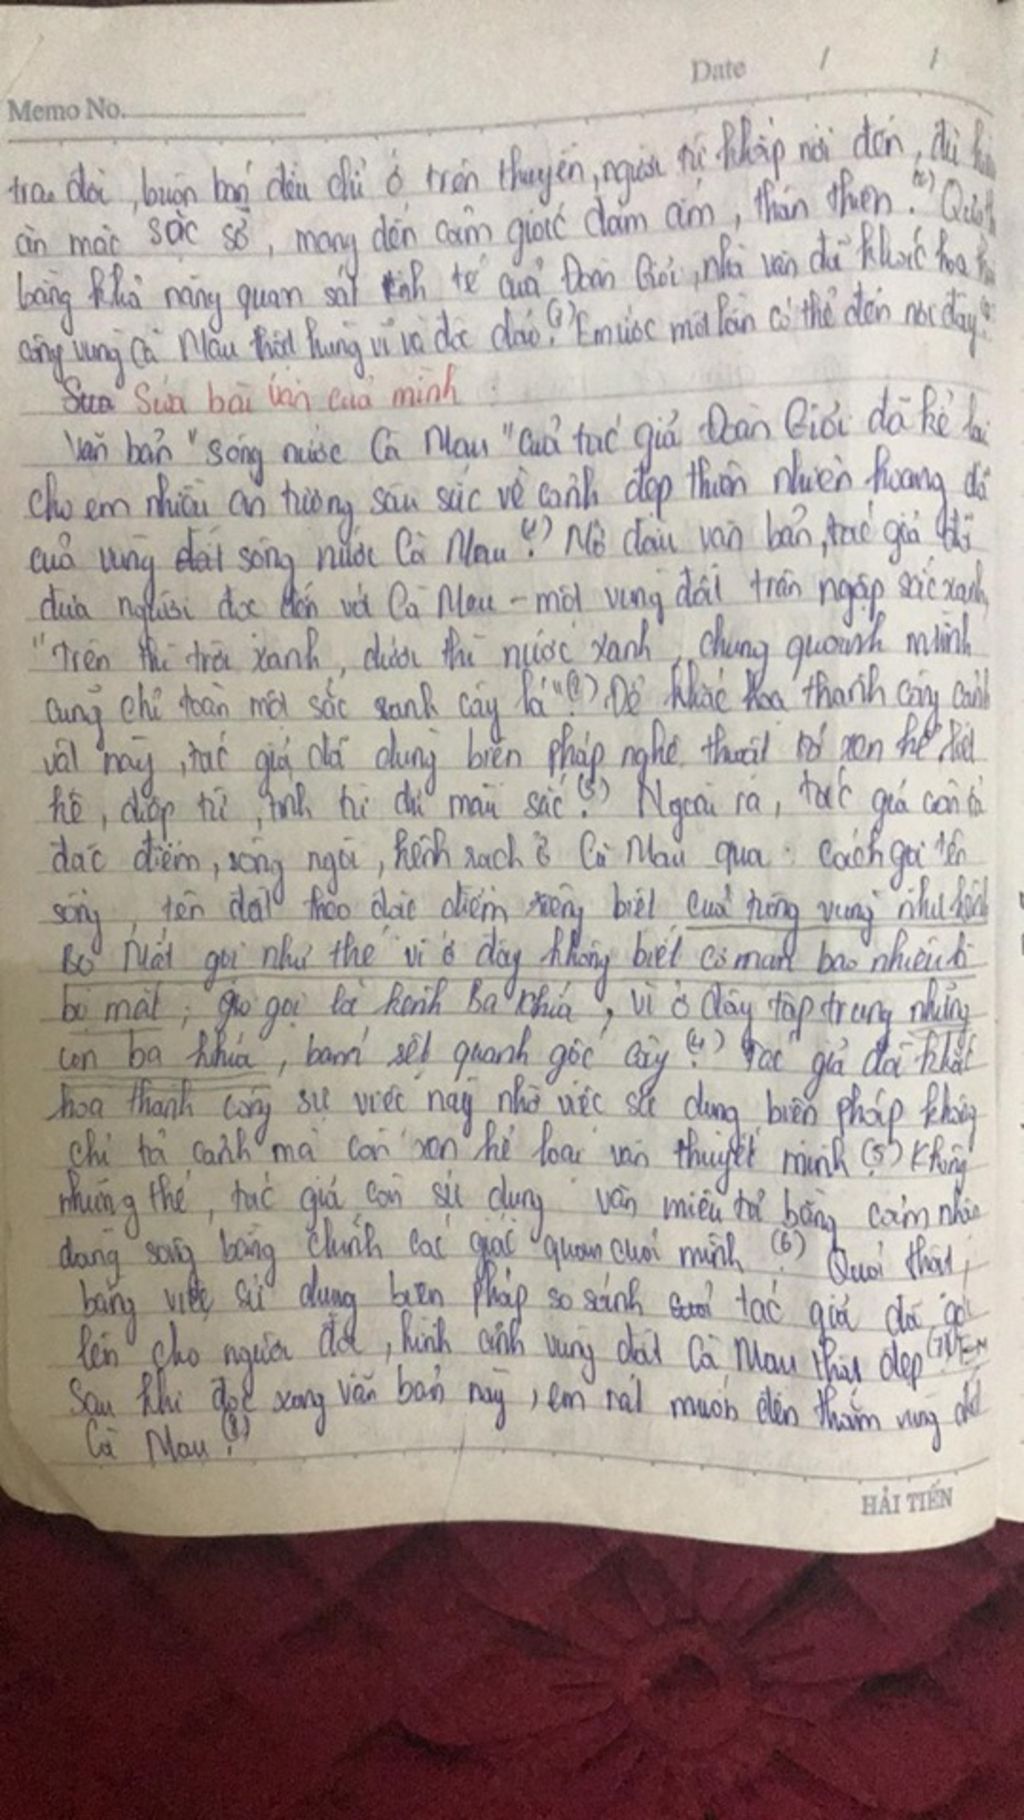 Date / /
Memo No.
trao đổi, buôn bán đều chỉ ở trên thuyền, người từ khắp nơi đến, đủ
ăn mặc sặc sỡ, mang đến cảm giác đầm ấm, thân thiện.
bằng khả năng quan sát tinh tế của Đoàn Giỏi, nhà văn đã khắc họa
công vùng Cà Mau thật hùng vĩ và độc đáo. Em ước một lần có thể đến nơi đây.
Sửa Sửa bài văn của mình
Văn bản "Sông nước Cà Mau" của tác giả Đoàn Giỏi đã kể lại
cho em nhiều ấn tượng sâu sắc về cảnh đẹp thiên nhiên hoang dã
của vùng đất sông nước Cà Mau (1). Mở đầu văn bản, tác giả đã
đưa người đọc đến với Cà Mau - một vùng đất tràn ngập sắc xanh,
"Trên thì trời xanh, dưới thì nước xanh, chung quanh mình
cũng chỉ toàn một sắc xanh cây lá" (2). Để khắc họa thành công cảnh
vật này, tác giả đã dùng biện pháp nghệ thuật tả xen kẽ, liệt
kê, điệp từ, tính từ chỉ màu sắc (3). Ngoài ra, tác giả còn tả
đặc điểm, sông ngòi, kênh rạch ở Cà Mau qua cách gọi tên
sông, tên đất theo đặc điểm riêng biệt của từng vùng như kênh
Bọ Mắt gọi như thế vì ở đây không biết cơ man bao nhiêu là
bọ mắt; gọi là kênh Ba Khía, vì ở đây tập trung những
con ba khía, bám sệt quanh gốc cây (4). Tác giả đã khắc
họa thành công sự việc này nhờ việc sử dụng biện pháp không
chỉ tả cảnh mà còn xen kẽ loại văn thuyết minh (5). Không
những thế, tác giả còn sử dụng văn miêu tả bằng cảm nhận
dòng sông bằng chính các giác quan của mình (6). Quả thật,
bằng việc sử dụng biện pháp so sánh tác giả đã gợi
lên cho người đọc, hình ảnh vùng đất Cà Mau thật đẹp (7).
Sau khi đọc xong văn bản này, em rất muốn đến thăm vùng đất
Cà Mau (8).
HẢI TIẾN